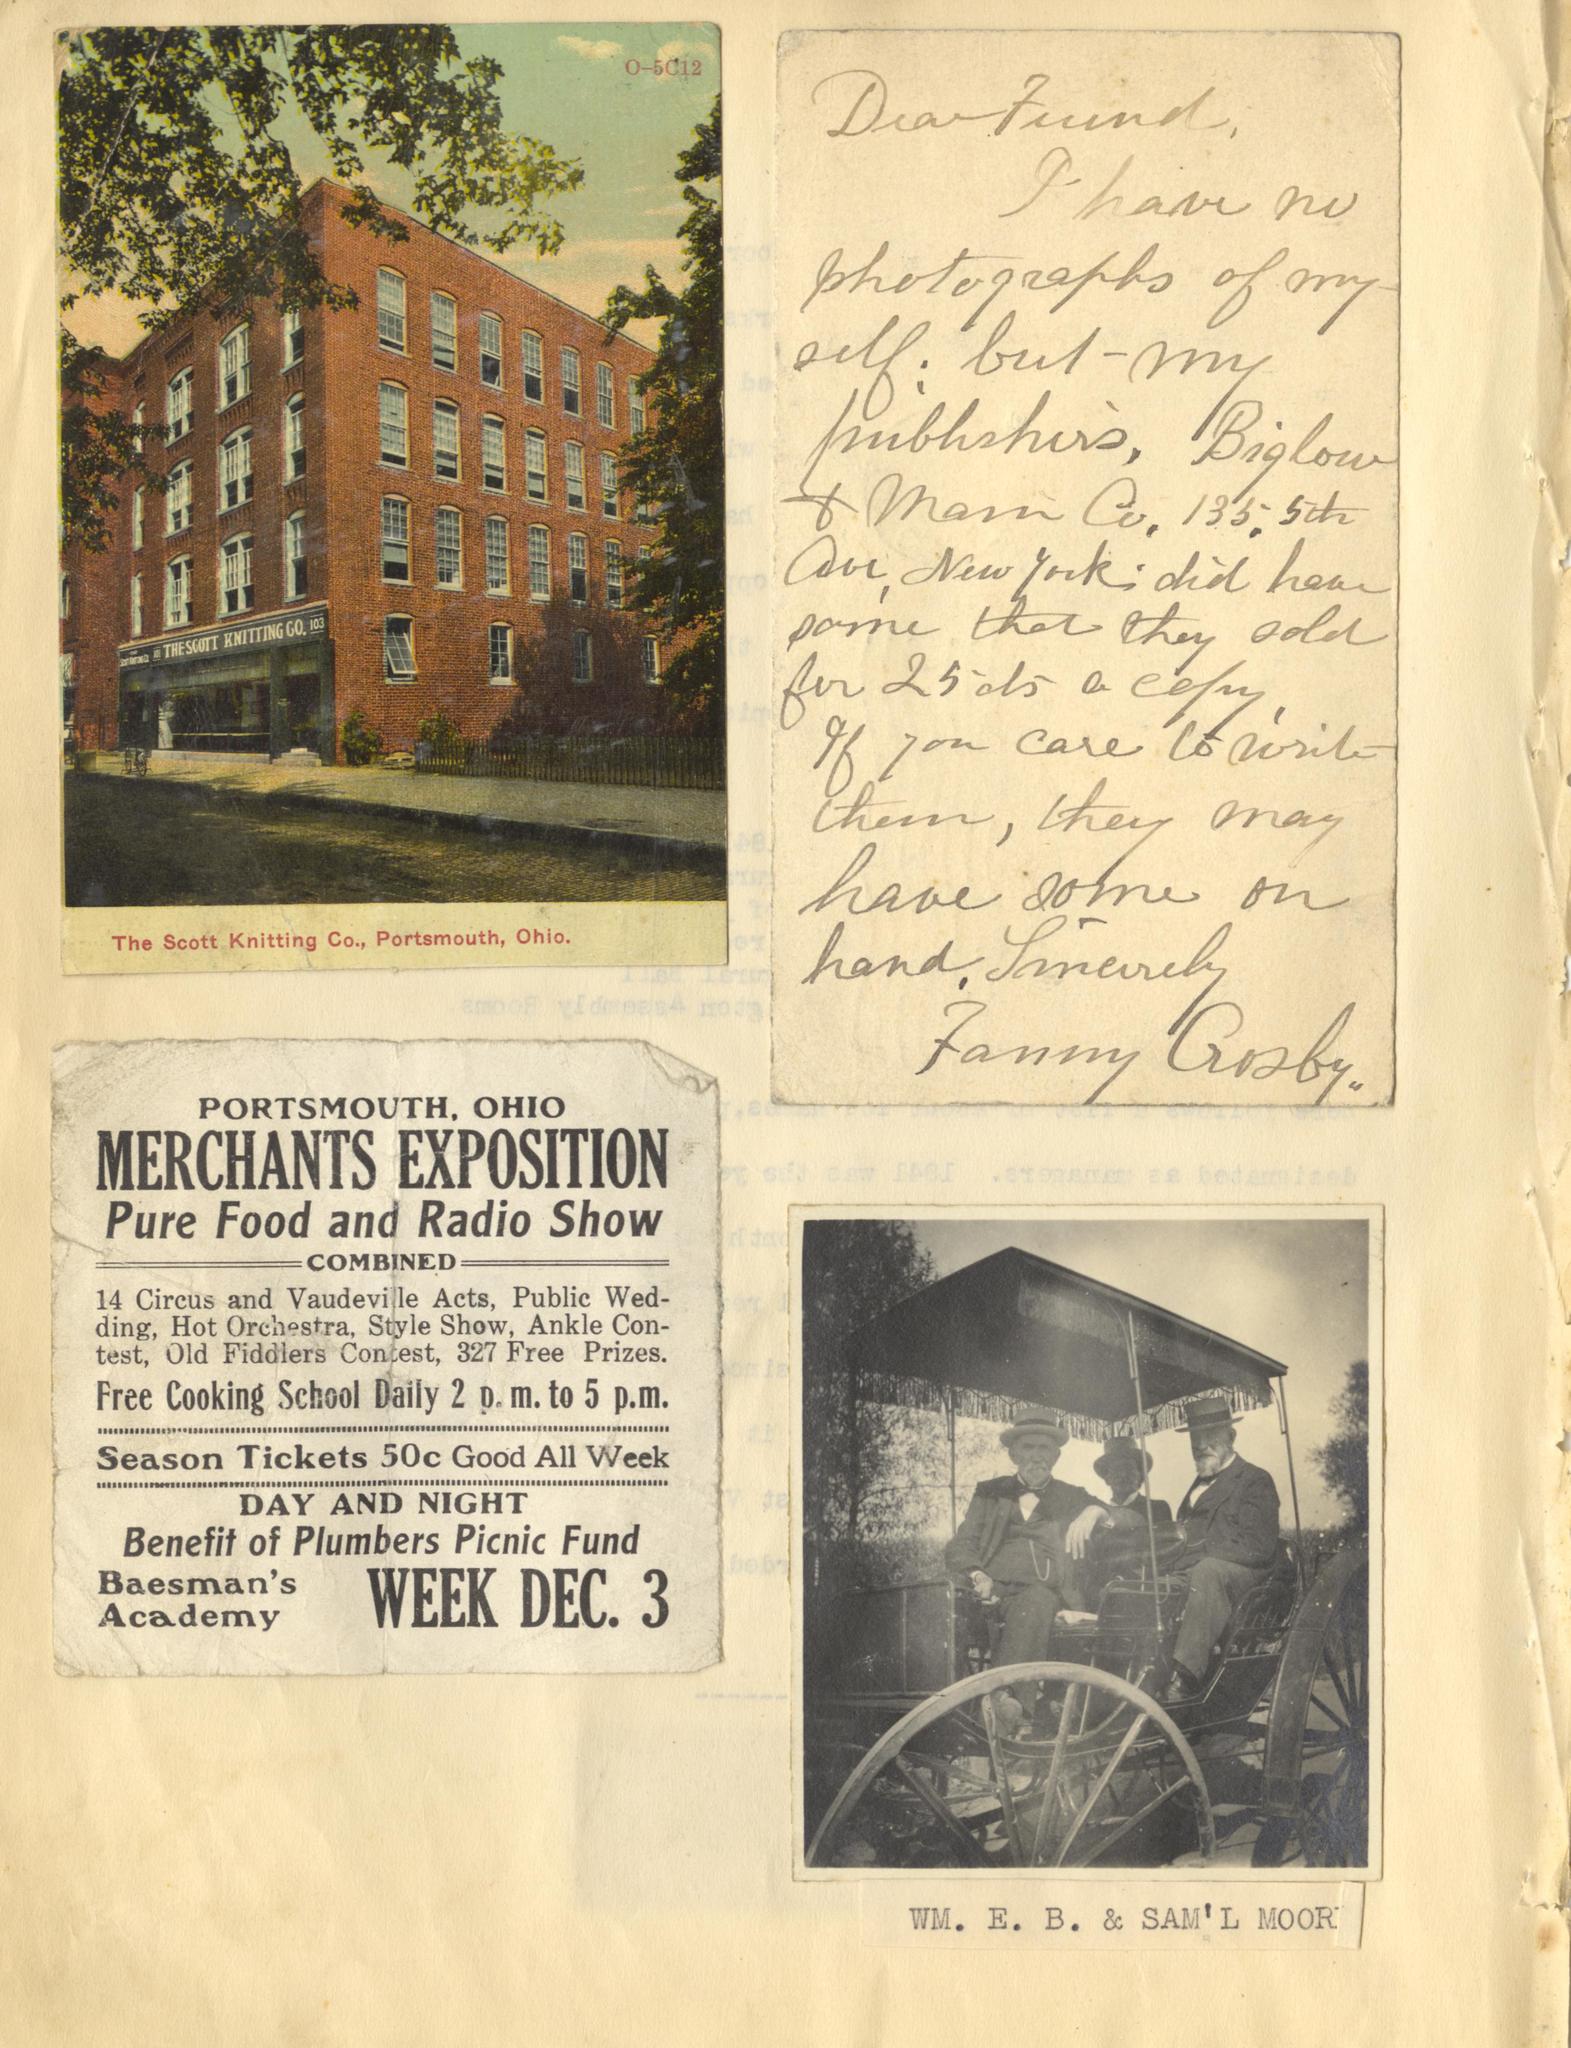 O-5C12
THE SCOTT KNITTING CO. 103
The Scott Knitting Co., Portsmouth, Ohio.
Dear Friend,
I have no
photographs of my-
self; but my
publishers, Biglow
& Main Co. 135, 5th
Ave, New York; did have
some that they sold
for 25 cts a copy,
If you care to write
them, they may
have some on
hand, Sincerely
Fanny Crosby.
PORTSMOUTH, OHIO
MERCHANTS EXPOSITION
Pure Food and Radio Show
COMBINED
14 Circus and Vaudeville Acts, Public Wed-
ding, Hot Orchestra, Style Show, Ankle Con-
test, Old Fiddlers Contest, 327 Free Prizes.
Free Cooking School Daily 2 p. m. to 5 p.m.
Season Tickets 50c Good All Week
DAY AND NIGHT
Benefit of Plumbers Picnic Fund
Baesman's
Academy
WEEK DEC. 3
WM. E. B. & SAM'L MOOR